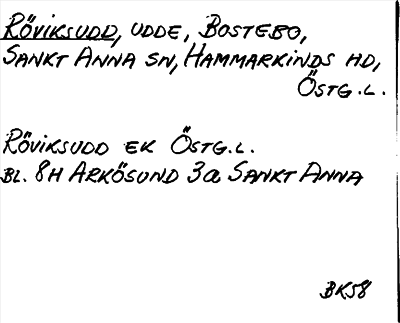 RÖVIKSUDD, UDDE, BOSTEBO,
SANKT ANNA SN, HAMMARKINDS HD,
ÖSTG.L.
RÖVIKSUDD EK ÖSTG.L.
BL. 8H ARKÖSUND 3a SANKT ANNA
BK58